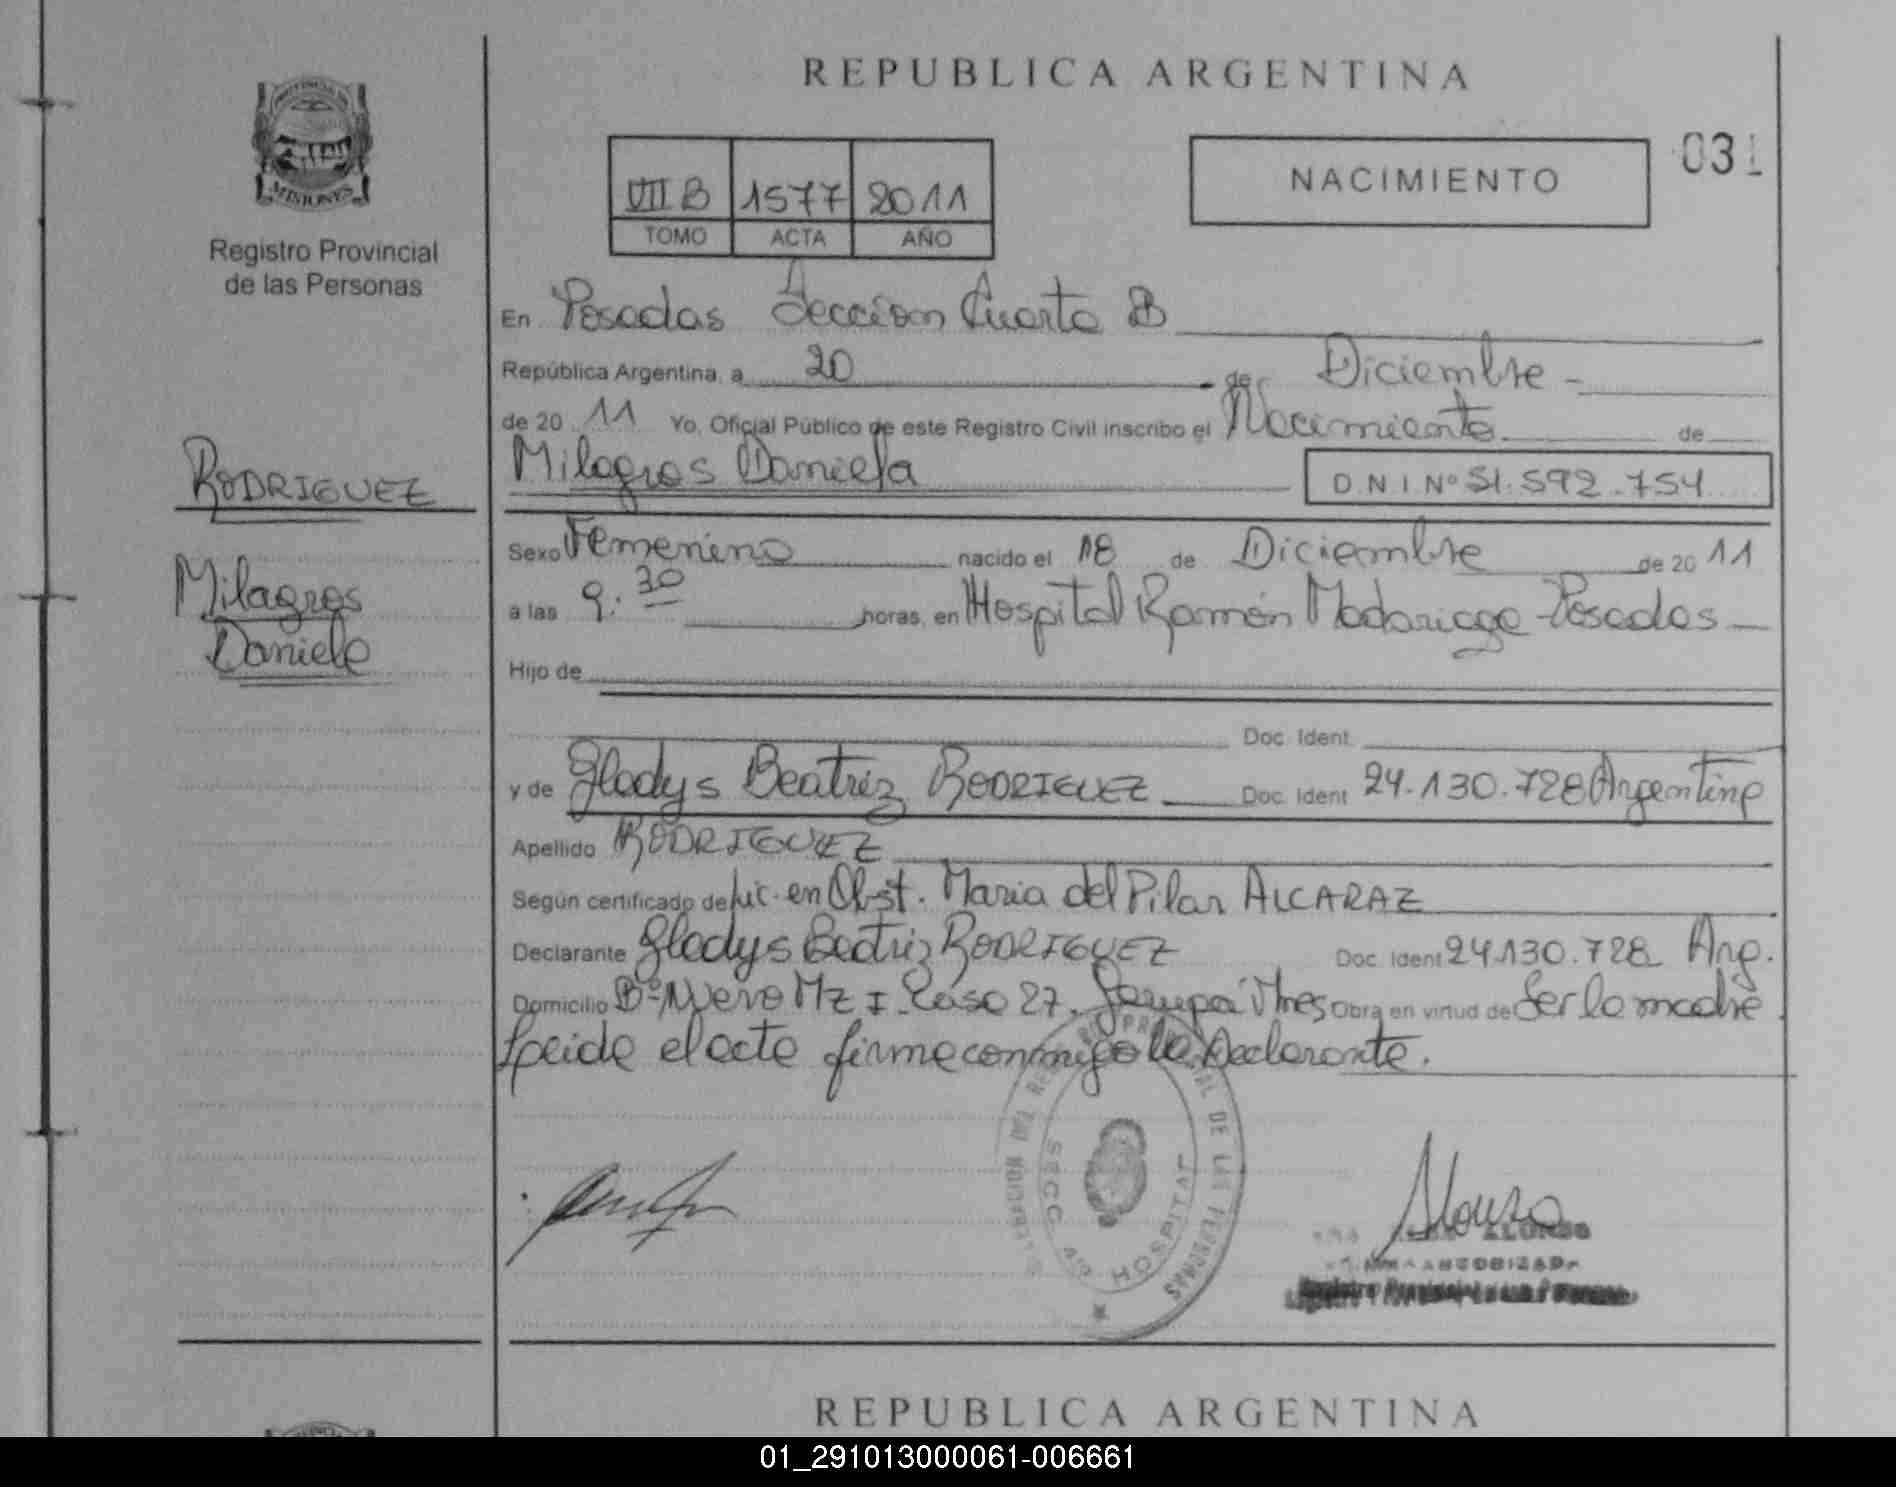 REPUBLICA ARGENTINA
MISIONES
Registro Provincial
de las Personas
VII B 1577 2011
TOMO ACTA AÑO
NACIMIENTO
031
En Posadas Seccion Cuarta B
República Argentina, a 20 de Diciembre
de 20 11 Yo, Oficial Público de este Registro Civil inscribo el Nacimiento de
Milagros Daniela D.N.I Nº 51.592.754
RODRIGUEZ
Milagros
Daniela
Sexo Femenino nacido el 18 de Diciembre de 20 11
a las 9.30 horas, en Hospital Ramón Madariaga - Posadas
Hijo de
Doc. Ident.
y de Gladys Beatriz RODRIGUEZ Doc. Ident 24.130.728 Argentina
Apellido RODRIGUEZ
Según certificado de Lic. en Obst. Maria del Pilar ALCARAZ
Declarante Gladys Beatriz RODRIGUEZ Doc. Ident 24.130.728 Arg.
Domicilio Bº Nuevo Mz I Casa 27, Garupá Mnes Obra en virtud de Ser la madre
Leida el acta firma conmigo la Declarante.
DE LAS PERSONAS
SECC 4º HOSPITAL
Alonso
ALONSO
REPUBLICA ARGENTINA
01_291013000061-006661